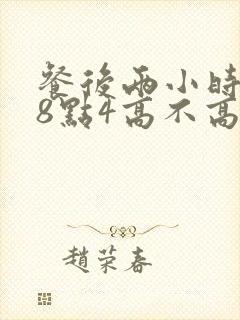 餐後兩小時
8點4高不高
趙荣春